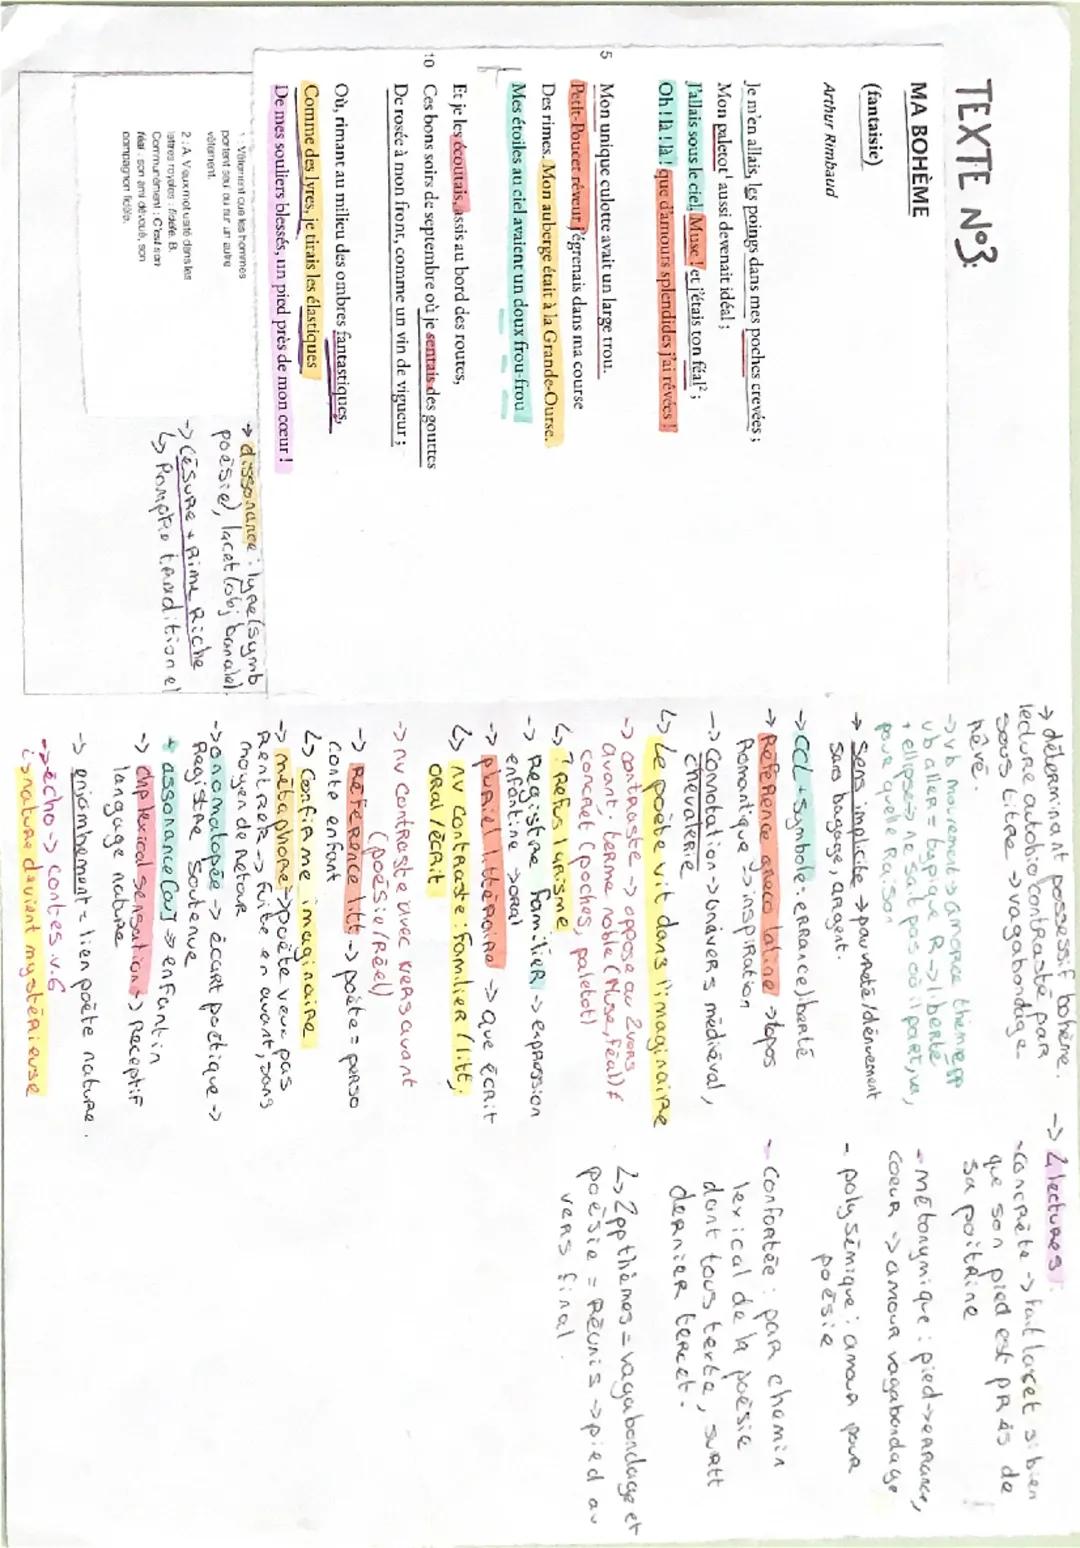 TEXTE N°3:
MA BOHÈME
(fantaisie)
Arthur Rimbaud
Je m'en allais, les poings dans mes poches crevées ;
Mon paletot¹ aussi devenait idéal ;
J'allais sous le ciel, Muse ! et j'étais ton féal² ;
Oh ! là ! là ! que d'amours splendides j'ai rêvées !
5 Mon unique culotte avait un large trou.
Petit-Poucet rêveur, j'égrenais dans ma course
Des rimes. Mon auberge était à la Grande-Ourse.
Mes étoiles au ciel avaient un doux frou-frou
Et je les écoutais, assis au bord des routes,
10 Ces bons soirs de septembre où je sentais des gouttes
De rosée à mon front, comme un vin de vigueur ;
Où, rimant au milieu des ombres fantastiques,
Comme des lyres, je tirais les élastiques
De mes souliers blessés, un pied près de mon cœur !
1 : Vêtement que les hommes
portent seul ou sur un autre
vêtement.
2 : A. Vieux mot usité dans les
lettres royales : fidèle. B.
Communément : C'est son
féal : son ami dévoué, son
compagnon fidèle.
-> dissonance : lyre (symb
poésie), lacet (obj banale).
-> césure + Rime Riche
↳ Rompre tradition el
-> déterminant possessif bohème.
lecture autobio contrasté par
sous titre -> vagabondage
rêvé.
-> vb mouvement -> amorce thème pp
vb aller = typique R -> liberté
+ ellipse -> ne sait pas où il part, va,
pour quelle Raison
-> Sens implicite -> pauvreté/dénuement
sans bagage, argent.
-> CCL + symbole : errance/liberté
-> Référence gréco latine -> topos
Romantique -> inspiration
-> Connotation -> univers médiéval,
chevalerie
↳ Le poète vit dans l'imaginaire
-> contraste -> oppose au 2 vers
avant : terme noble (Muse, féal) ≠
concret (poches, paletot)
↳ ? Refus lyrisme
-> Registre familier -> expression
enfantine -> oral
-> pluriel littéraire -> que écrit
↳ nv contraste : familier / litt,
oral / écrit
-> nv contraste avec vers avant
(poésie / Réel)
-> Référence litt -> poète = perso
conte enfant
↳ confirme imaginaire
-> métaphore -> poète veux pas
rentrer -> fuite en avant, sans
moyen de retour
-> onomatopée -> écart poétique ->
Registre soutenue
+ assonance [ou] -> enfantin
-> chp lexical sensation -> réceptif
langage nature
-> enjambement = lien poète nature.
-> écho -> contes v.6
↳ nature devient mystérieuse
-> 4 lectures :
- Concrète -> fait lacet si bien
que son pied est près de
sa poitrine
- métonymique : pied -> errance,
coeur -> amour vagabondage
- polysémique : amour pour
poésie
- Confortée : par chemin
lexical de la poésie
dont tous texte, surtt
dernier tercet.
↳ 2 pp thèmes = vagabondage et
poésie = Réunis -> pied au
vers final.